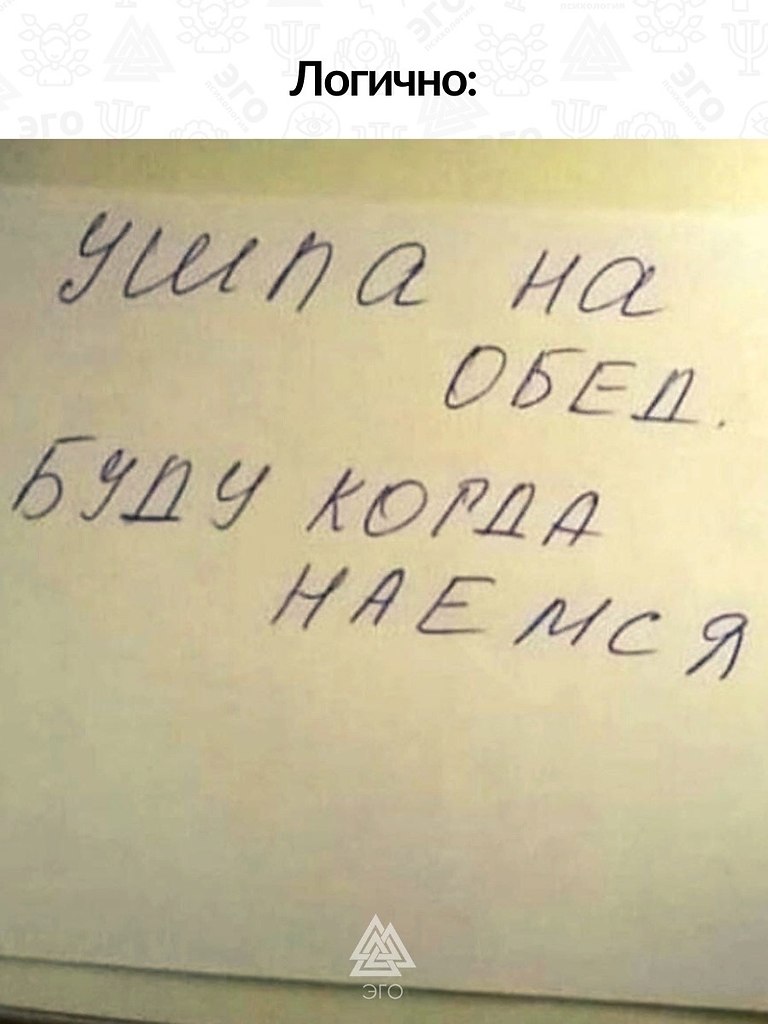 Логично:
ушла на
ОБЕД.
БУДУ КОГДА
НАЕМСЯ
ЭГО